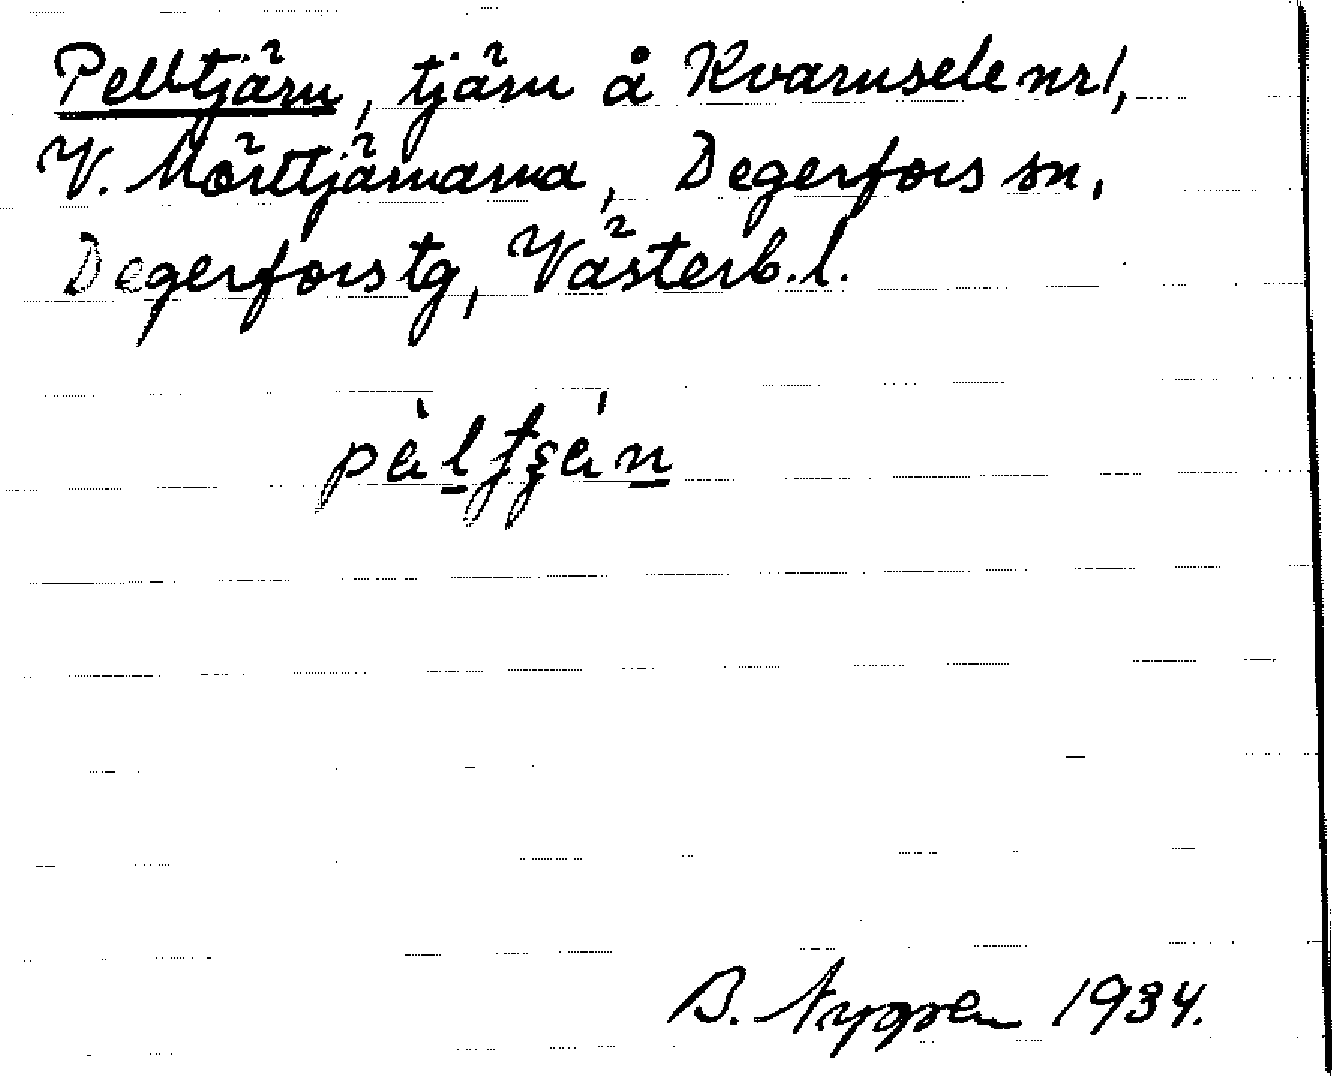 Pelltjärn, tjärn å Kvarnsele nr 1,
V. Mörttjärnarna, Degerfors sn,
Degerfors tg, Västerb. l.
B. Nygren 1934.